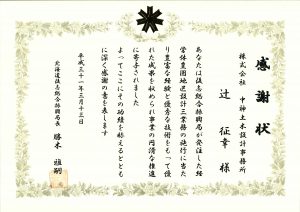 感謝状
株式会社 中神土木設計事務所
辻 征幸 様
あなたは後志総合振興局が発注した経
営体豊国地区設計三業務の施行に当た
り豊富な経験と優秀な技術をもって優
れた成果を収められ事業の円滑な推進
に寄与されました
よってここにその功績を称えるととも
に深く感謝の意を表します
平成三十一年三月十三日
北海道後志総合振興局長 勝木 雅嗣